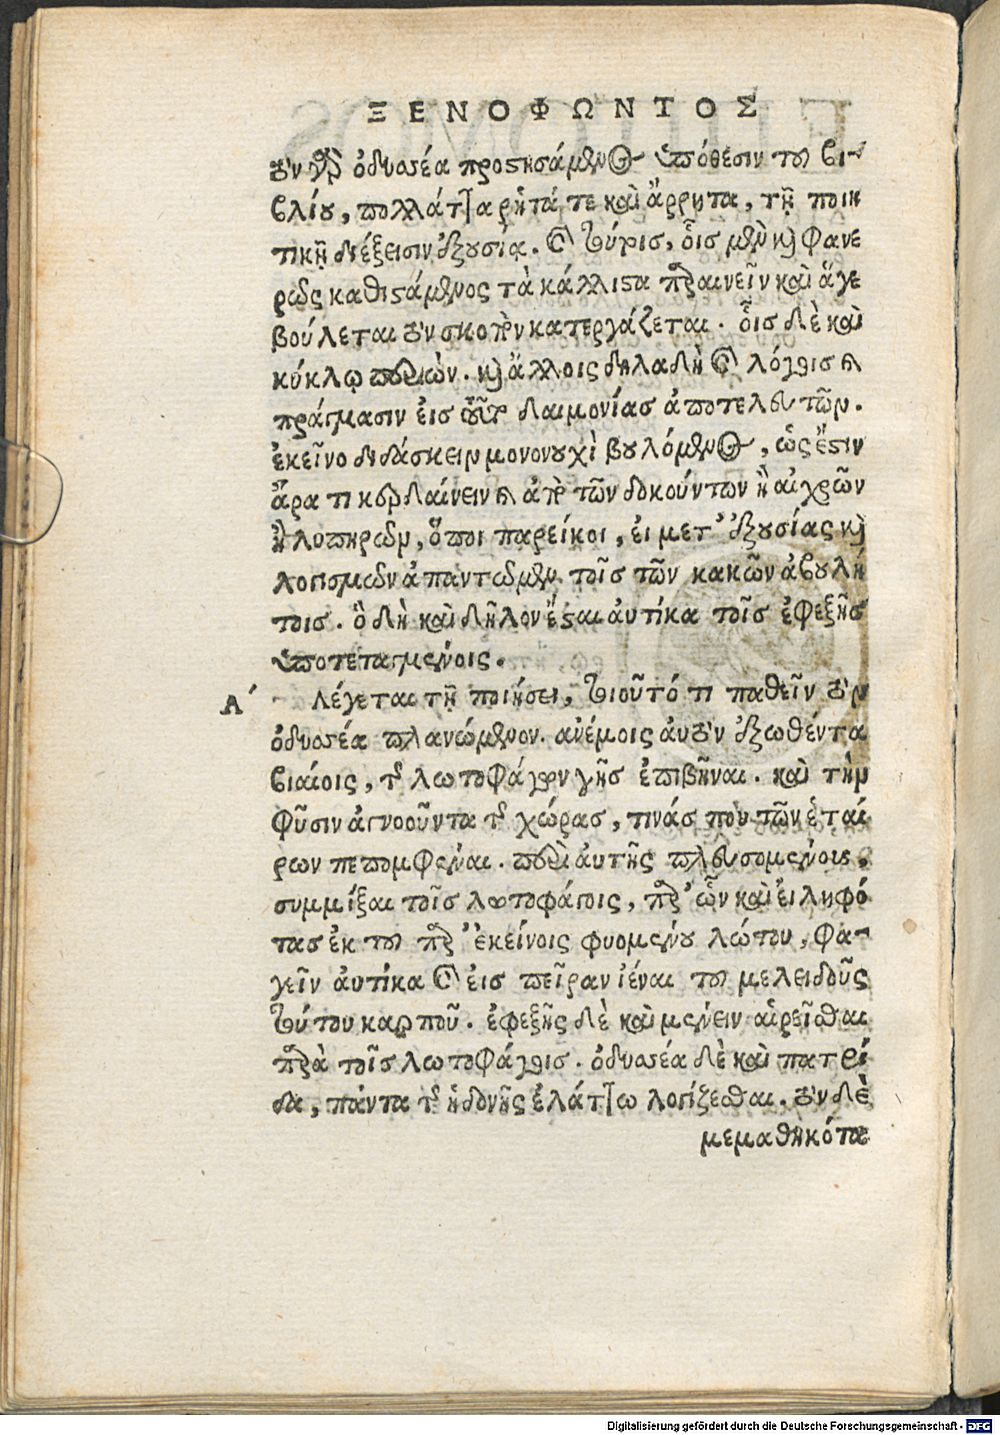 ΞΕΝΟΦΩΝΤΟΣ
τὸν ὀδυσέα προστησάμενος ὑπόθεσιν τοῦ βι-
βλίου, πολλάττα ῥητά τε καὶ ἄρρητα, τῇ ποιη
τικῇ διέξεισιν ἐξουσίᾳ. καὶ τούτοις, οἷς μὲν καὶ φανε
ρῶς καθιστάμενος τὰ κάλλιστα παραινεῖν καὶ ἄγε
βούλεται τὸν σκοπὸν κατεργάζεται. οἷς δὲ καὶ
κύκλῳ περιιὼν. καὶ ἄλλοις δηλαδὴ καὶ λόγοις καὶ
πράγμασιν εἰς δαιμονίας ἀποτελευτῶν.
ἐκεῖνο διδάσκειν μονονουχὶ βουλόμενος, ὡς ἔστιν
ἄρα τι κερδαίνειν καὶ ἀπὸ τῶν δοκούντων ἢ αἰσχρῶν
ἢ λυπηρῶν, ὅποι παρείκοι, εἰ μετ' ἐξουσίας καὶ
λογισμῶν ἀπαντῶμεν τοῖς τῶν κακῶν ἀβουλή
τοις. ὃ δὴ καὶ δῆλον ἔσται αὐτίκα τοῖς ἐφεξῆς
ὑποτεταγμένοις.
Α΄ Λέγεται τῇ ποιήσει, τοιοῦτό τι παθεῖν τὸν
ὀδυσέα πλανώμενον. ἀνέμοις αὐτὸν ἐξωθέντα
βιαίοις, τῆς λωτοφάγων γῆς ἐπιβῆναι. καὶ τὴν
φῦσιν ἀγνοοῦντα τῆς χώρας, τινάς που τῶν ἑταί
ρων πεπομφέναι. περὶ αὐτῆς πευσομένους,
συμμίξαι τοῖς λωτοφάγοις, παρ' ὧν καὶ εἰληφό
τας ἐκ τοῦ παρ' ἐκείνοις φυομένου λώτου, φα-
γεῖν αὐτίκα καὶ εἰς πεῖραν ἰέναι τοῦ μελειδοῦς
τούτου καρποῦ. ἐφεξῆς δὲ καὶ μένειν αἱρεῖσθαι
παρὰ τοῖς λωτοφάγοις. ὀδυσέα δὲ καὶ πατρί
δα, πάντα τῆς ἡδονῆς ἐλάττω λογίζεσθαι. τὸν δὲ
μεμαθηκότα
Digitalisierung gefördert durch die Deutsche Forschungsgemeinschaft - DFG